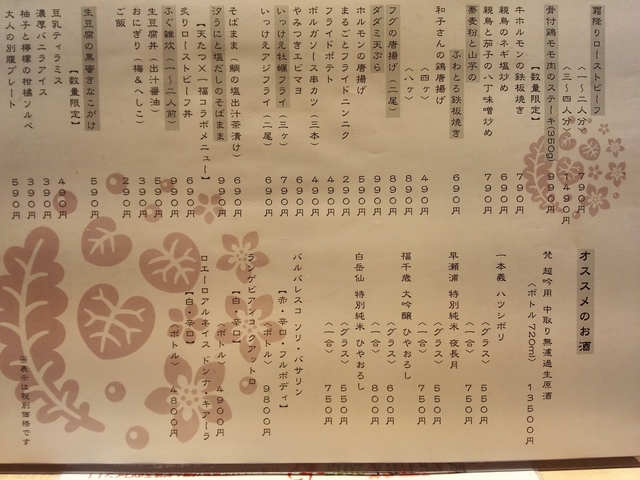 霜降りローストビーフ
〈一〜二人分〉 790円
〈三〜四人分〉 1490円
骨付鶏モモ肉のステーキ(350g) 990円
【数量限定】
牛ホルモンの鉄板焼き 790円
親鳥のネギ塩炒め 690円
親鳥と茄子の八丁味噌炒め 790円
蕎麦粉と山芋の
ふわとろ鉄板焼き 690円
和子さんの鶏唐揚げ
〈四ヶ〉 490円
〈八ヶ〉 890円
フグの唐揚げ(二尾) 890円
ダダミ天ぷら 990円
ホルモンの唐揚げ 590円
まるごとフライドニンニク 290円
フライドポテト 490円
ボルガソース串カツ(三本) 490円
やみつきエビマヨ 690円
いっけえ牡蠣フライ(三ヶ) 790円
いっけえアジフライ(二尾) 690円
そばまま(鯛の塩出汁茶漬け) 690円
汐うにと塩だしのそばまま 990円
【天たつ×一福コラボメニュー】
炙りローストビーフ丼 690円
ふぐ雑炊(一〜二人前) 990円
生豆腐丼(出汁醤油) 590円
おにぎり(梅&へしこ) 390円
ご飯 290円
生豆腐の黒蜜きなこがけ 590円
【数量限定】
豆乳ティラミス 490円
濃厚バニラアイス 390円
柚子と檸檬の柑橘ソルベ 390円
大人の別腹プレート 590円
オススメのお酒
梵 超吟 中取り無濾過生原酒
〈ボトル 720ml〉 13500円
一本義 ハツシボリ
〈グラス〉 550円
〈一合〉 750円
早瀬浦 特別純米 夜長月
〈グラス〉 550円
〈一合〉 750円
福千歳 大吟醸 ひやおろし
〈グラス〉 600円
〈一合〉 800円
白岳仙 特別純米 ひやおろし
〈グラス〉 550円
〈一合〉 750円
バルバレスコ ソリ・バサリン
【赤・辛口・フルボディ】
〈ボトル〉 9800円
ランゲビアンコ クアットロ
【白・辛口】
〈ボトル〉 4900円
ロエーロアルネイス ドンナ・キアーラ
【白・辛口】
〈ボトル〉 4800円
※表示は税別価格です